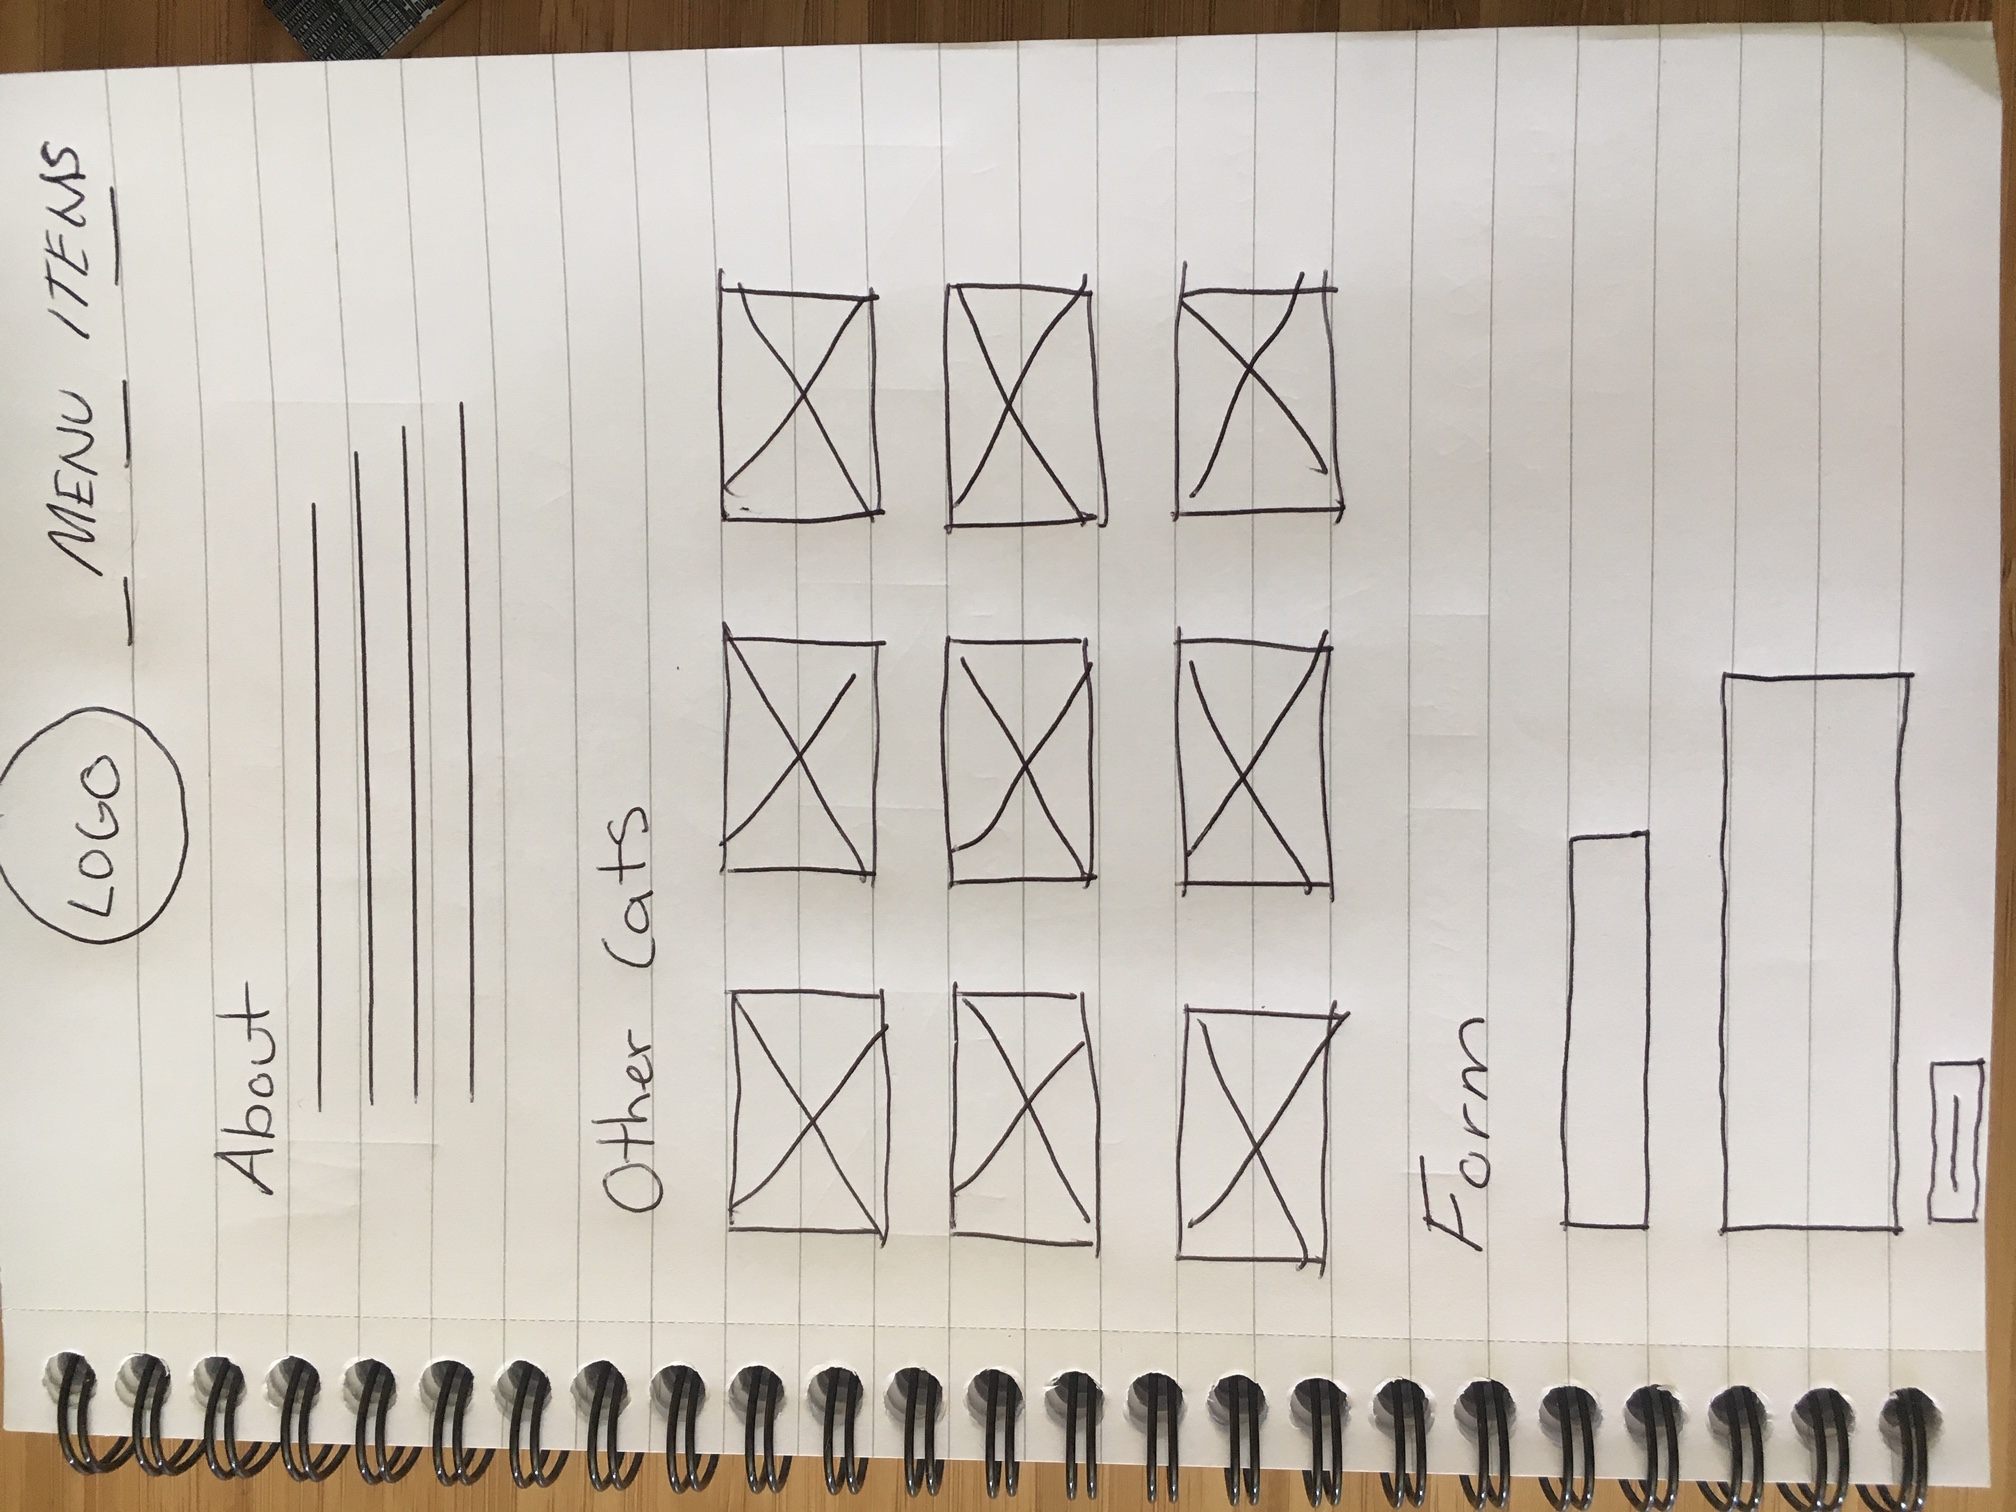 LOGO
MENU ITEMS
About
Other Cats
Form